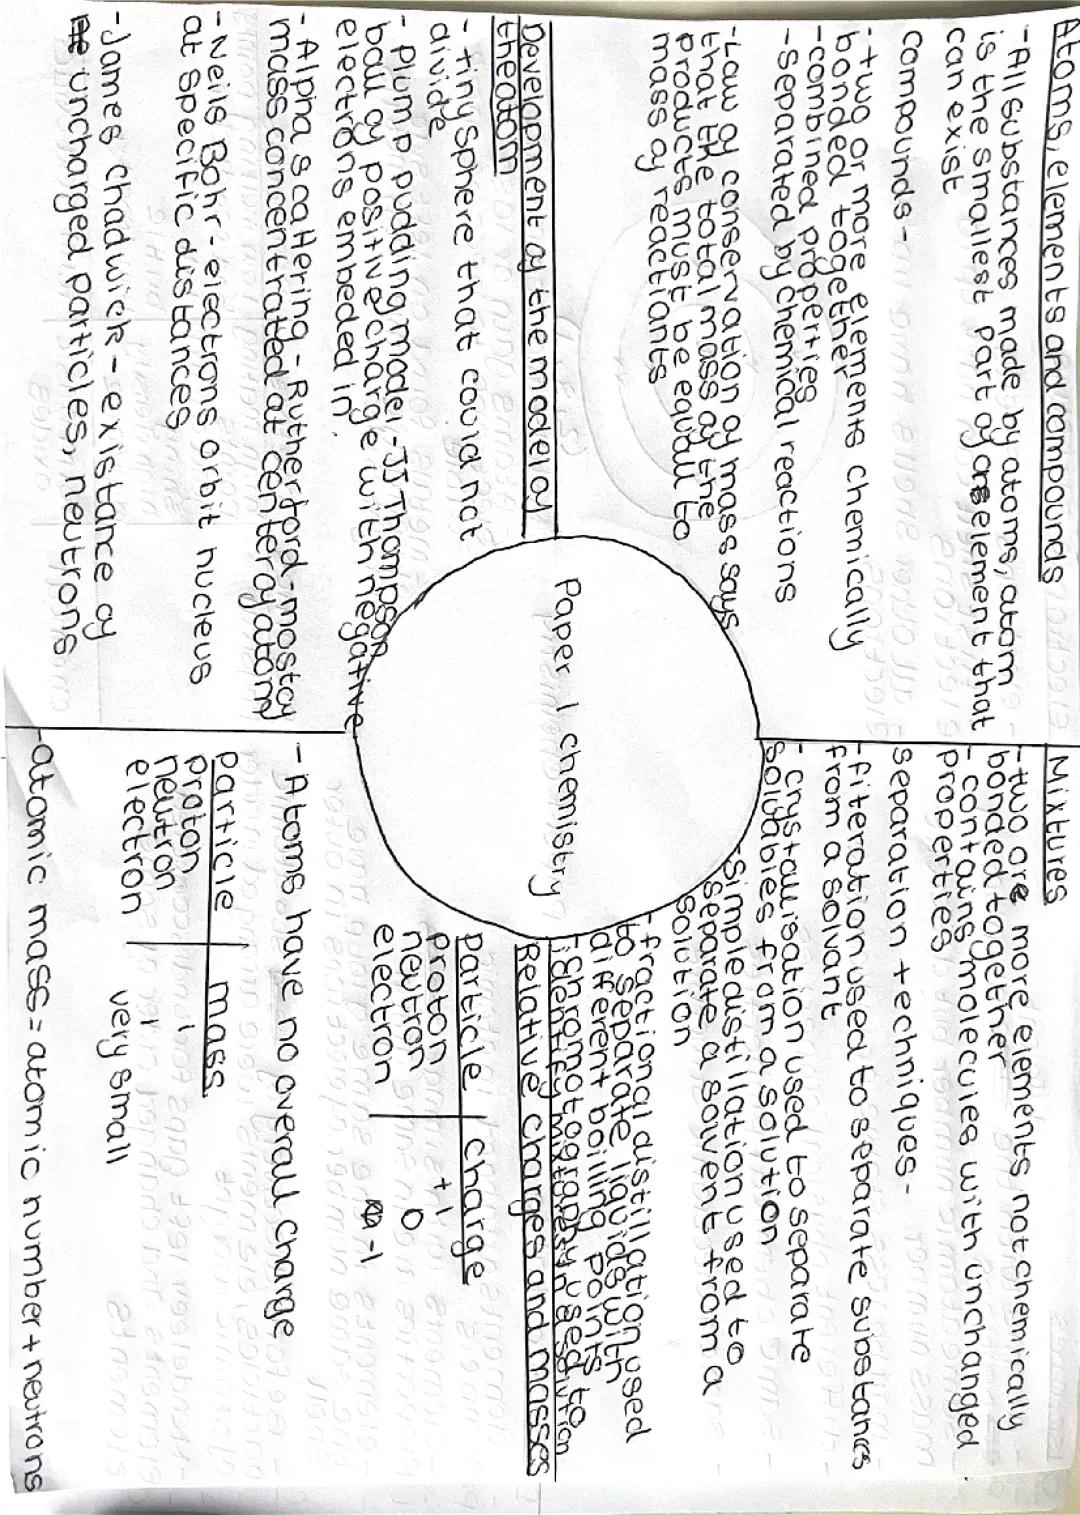 Atoms, elements and compounds
- All substances made by atoms, atom
is the smallest part of an element that
can exist
compounds -
- two or more elements chemically
bonded together
- combined properties
- separated by chemical reactions
- Law of conservation of mass says
that the total mass of the
products must be equal to
mass of reactants
Mixtures
- two ore more elements not chemically
bonded together
- contains molecules with unchanged
properties
separation techniques -
- fiteration used to separate substances
from a solvant
- crystallisation used to separate
soluables from a solution
- Simple distillation used to
separate a sovent from a
solution
- fractional distillation used
to separate liquids with
different boiling points
- chromotography used to
identify mixtures in solution
Paper 1 chemistry
Development of the model of
the atom
- tiny sphere that could not
divide
- Plum pudding model - JJ Thompson
ball of positive charge with negative
electrons embeded in.
- Alpha scattering - Rutherford - most of
mass concentrated at center of atom
- Neils Bohr - electrons orbit nucleus
at specific distances
- James chadwick - existance of
uncharged particles, neutrons
Relative charges and masses
particle charge
proton +1
neutron 0
electron -1
- Atoms have no overall charge
particle mass
proton 1
neutron 1
electron very small
- atomic mass = atomic number + neutrons